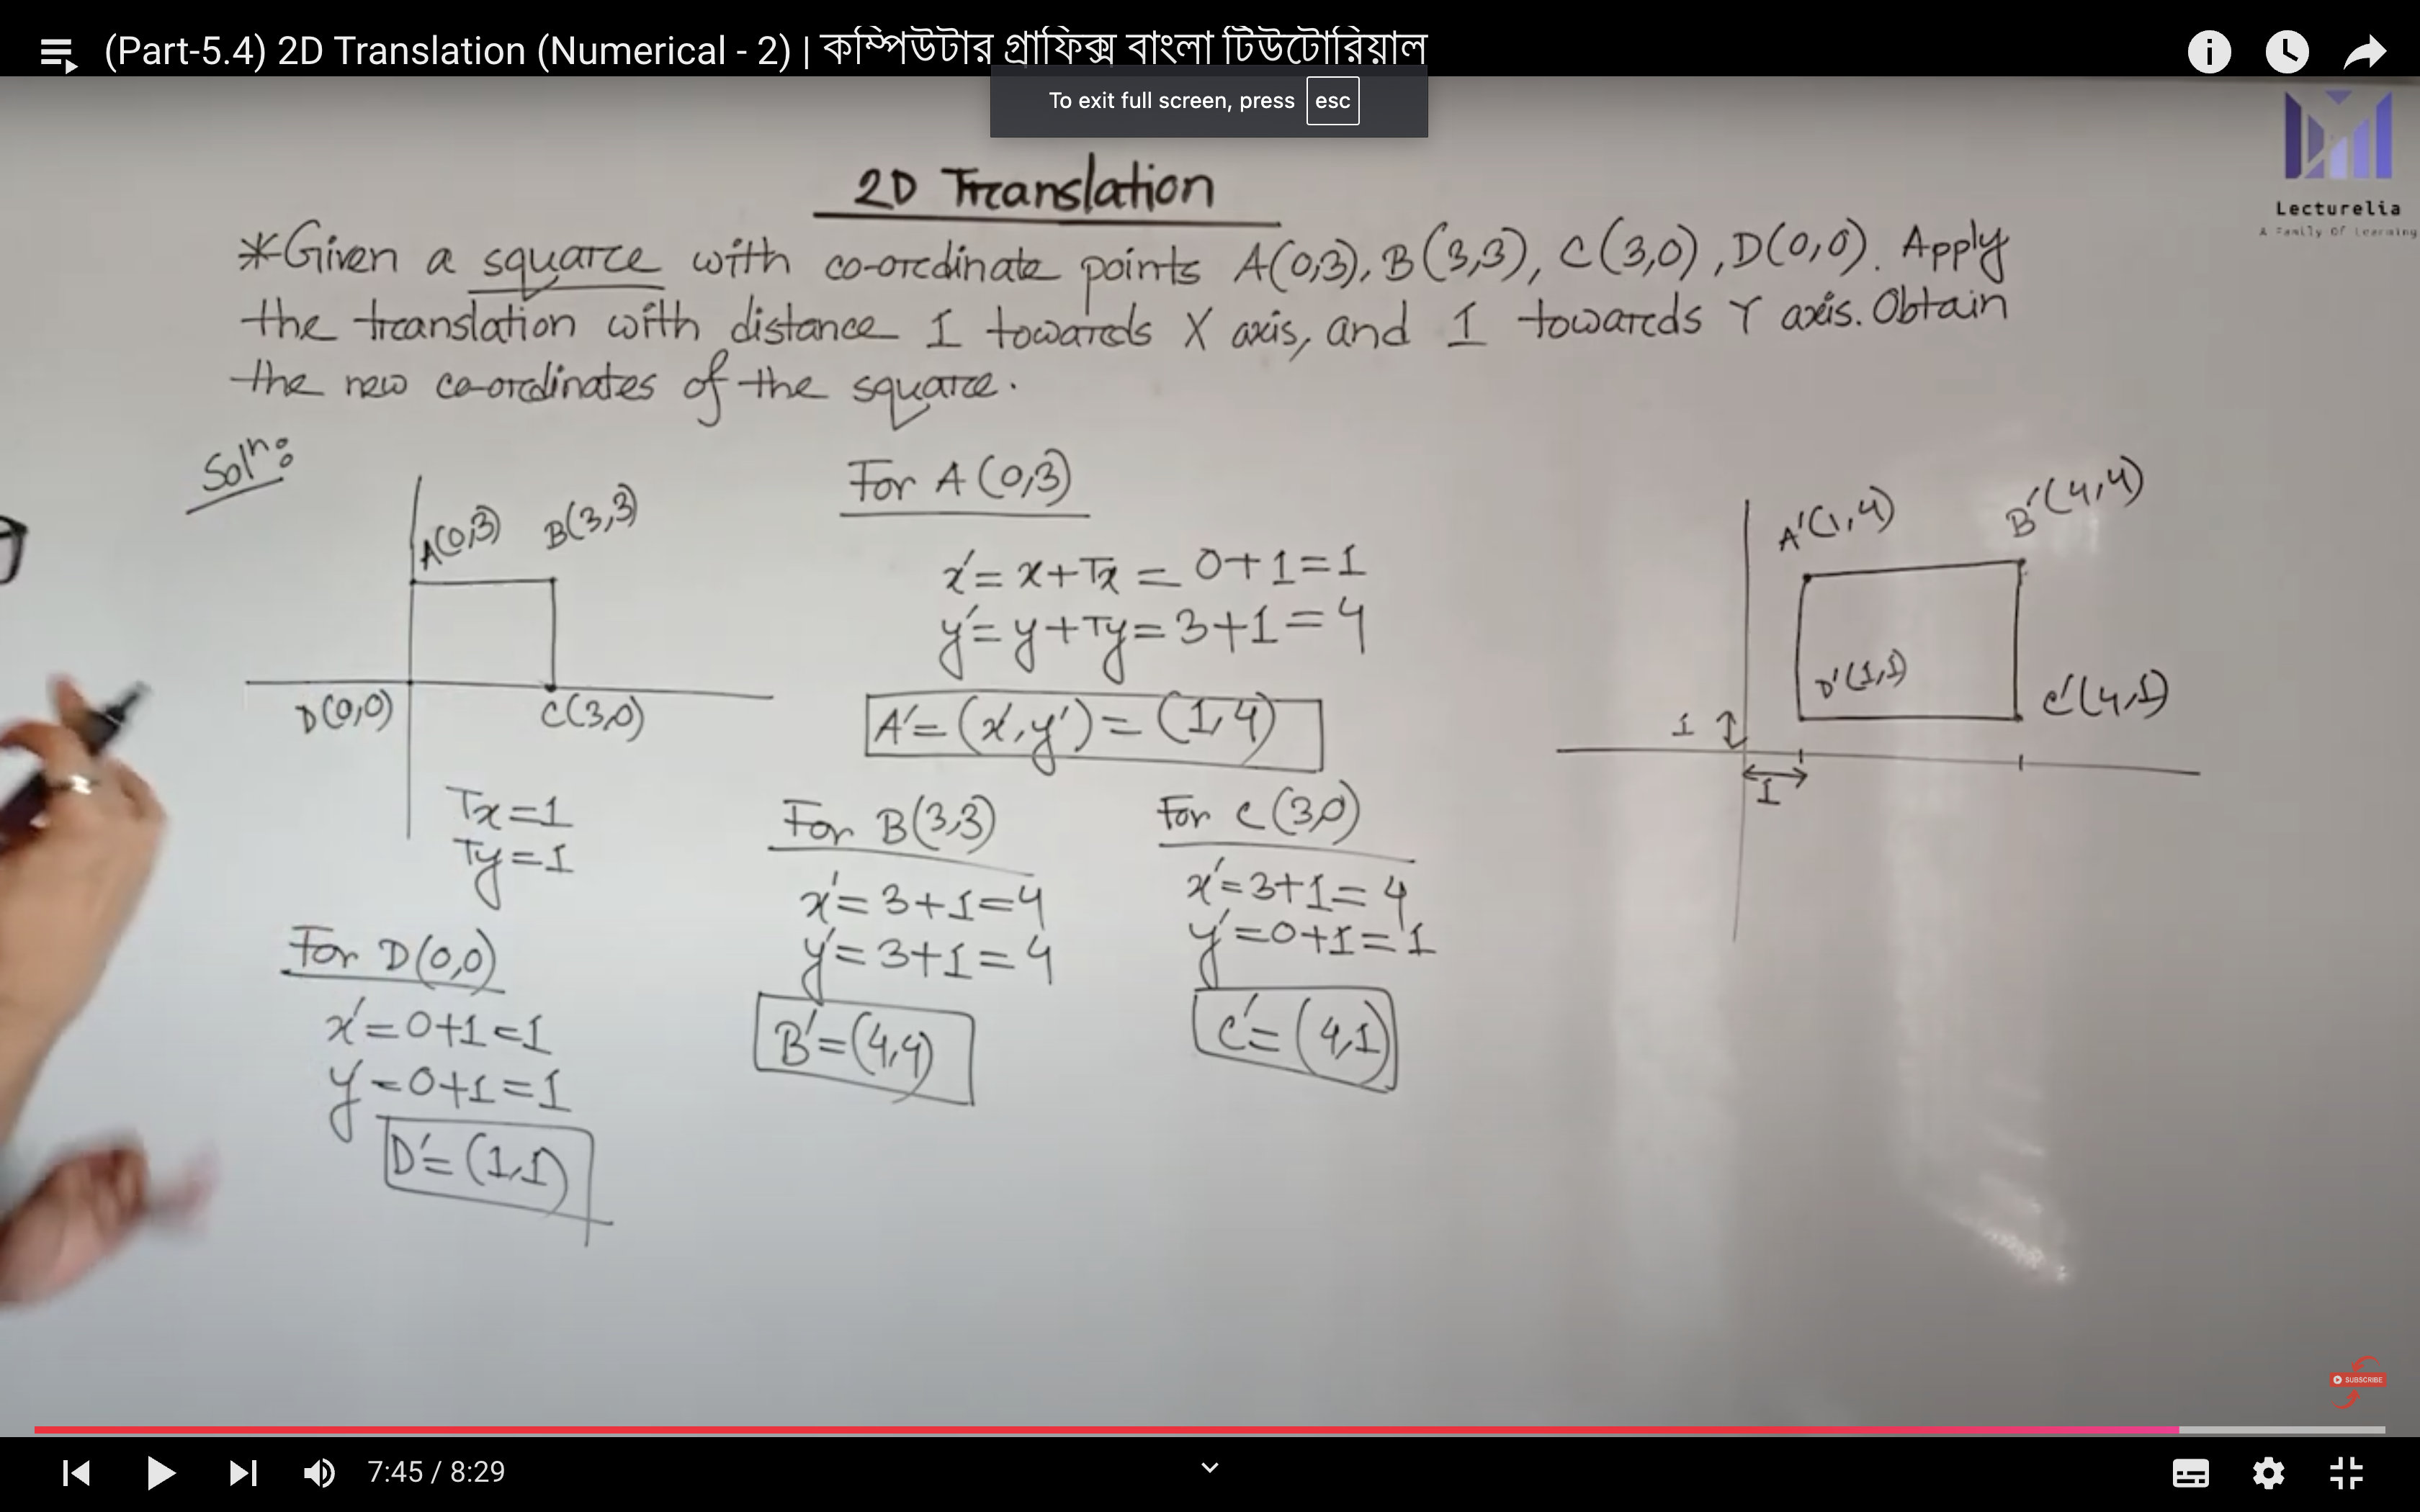 (Part-5.4) 2D Translation (Numerical - 2) | কম্পিউটার গ্রাফিক্স বাংলা টিউটোরিয়াল
To exit full screen, press esc
Lecturelia
A Family Of Learning
2D Translation
*Given a square with co-ordinate points A(0,3), B(3,3), C(3,0), D(0,0). Apply
the translation with distance 1 towards X axis, and 1 towards Y axis. Obtain
the new co-ordinates of the square.
Solⁿ:
A(0,3) B(3,3)
D(0,0) C(3,0)
Tx=1
Ty=1
For A(0,3)
x'=x+Tx=0+1=1
y'=y+Ty=3+1=4
A'=(x',y')=(1,4)
For B(3,3)
x'=3+1=4
y'=3+1=4
B'=(4,4)
For C(3,0)
x'=3+1=4
y'=0+1=1
C'=(4,1)
For D(0,0)
x'=0+1=1
y'=0+1=1
D'=(1,1)
A'(1,4) B'(4,4)
D'(1,1) C'(4,1)
1
1
SUBSCRIBE
7:45 / 8:29